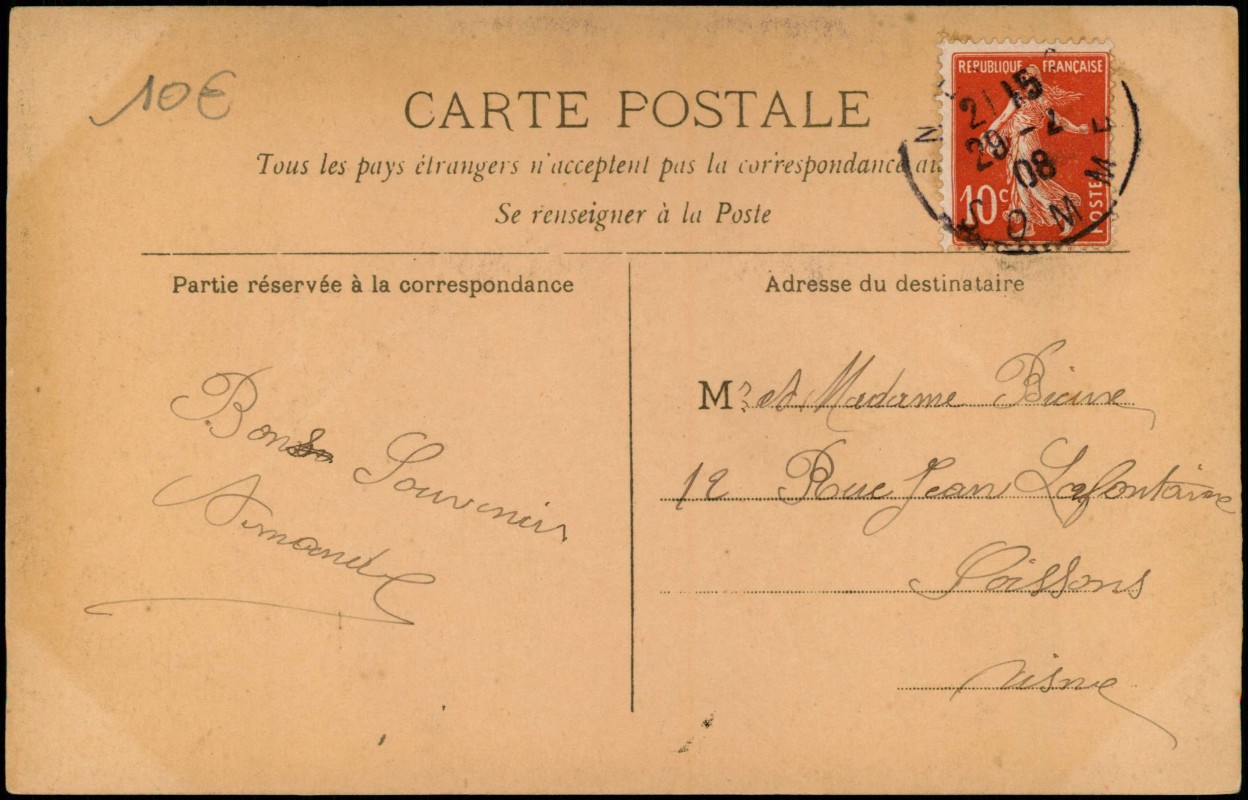 10€
CARTE POSTALE
Tous les pays étrangers n'acceptent pas la correspondance au
Se renseigner à la Poste
REPUBLIQUE FRANÇAISE
10c
POSTES
21 15
29 - 2
08
SOMME
Partie réservée à la correspondance
Adresse du destinataire
Bons Souvenir
Armand
Mr et Madame
12 Rue Jean Lafontaine
Soissons
Aisne